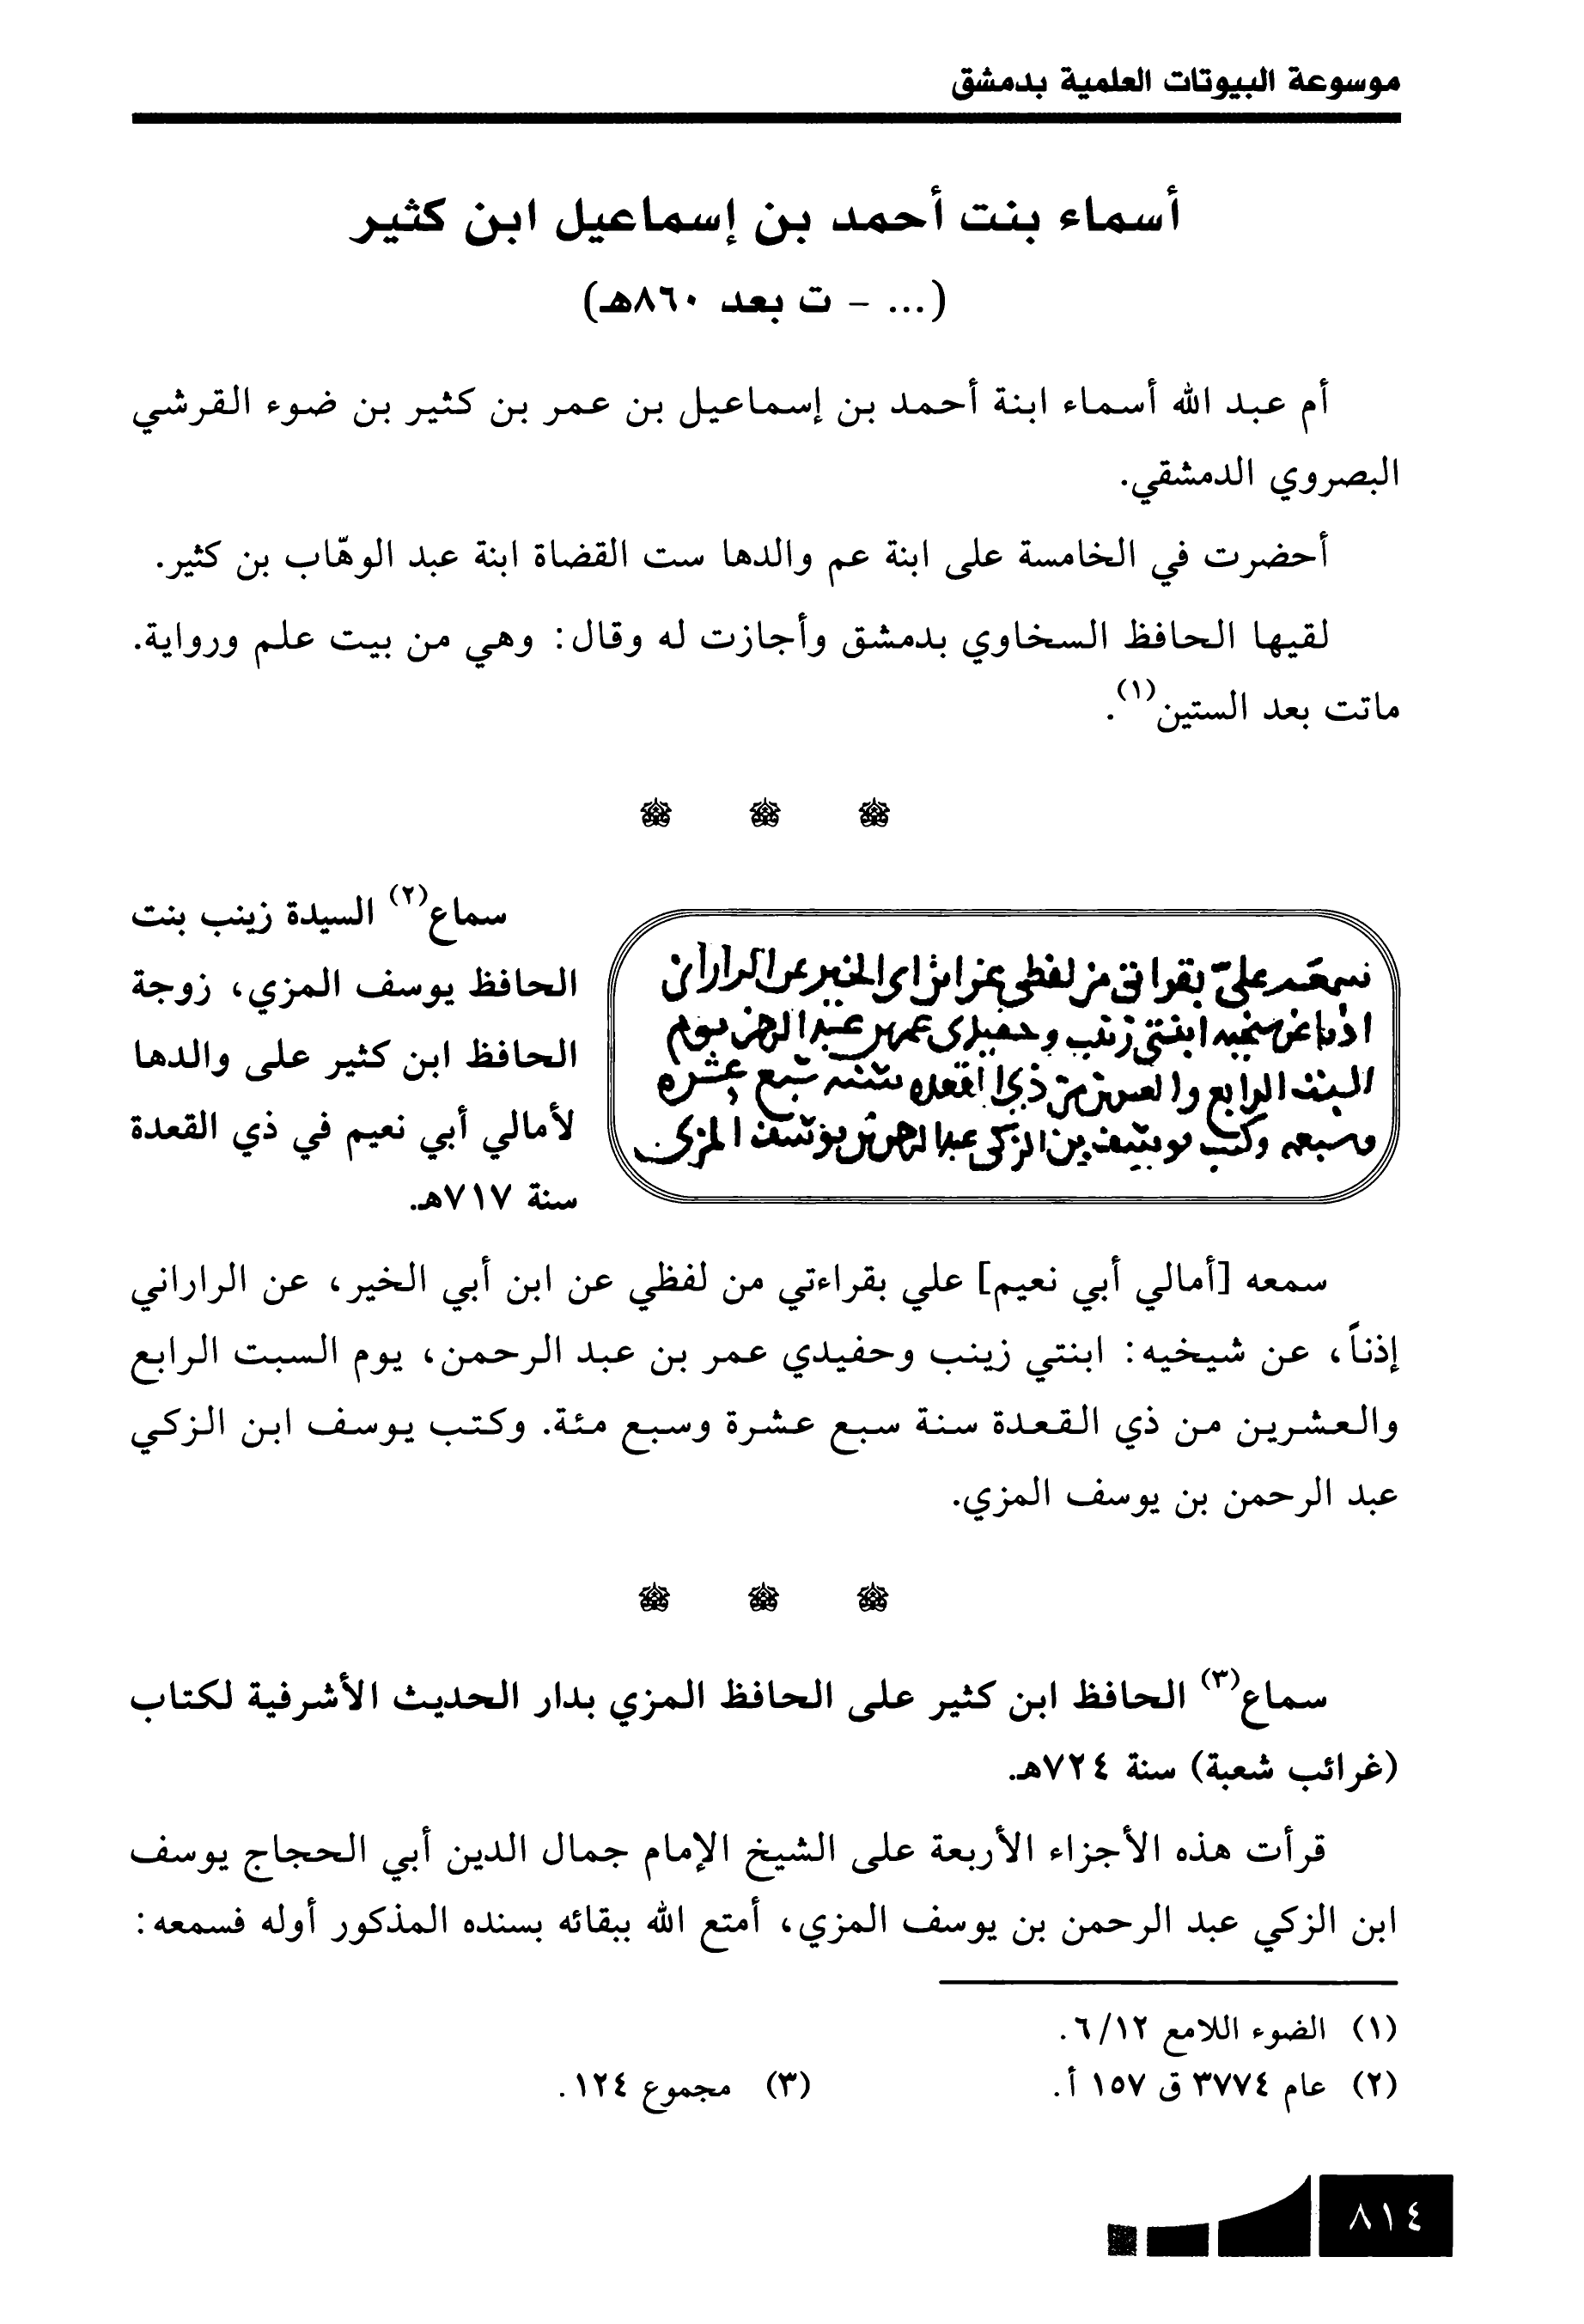 موسوعة البيوتات العلمية بدمشق
أسماء بنت أحمد بن إسماعيل ابن كثير
(... - ت بعد ٨٦٠هـ)
أم عبد الله أسماء ابنة أحمد بن إسماعيل بن عمر بن كثير بن ضوء القرشي
البصروي الدمشقي.
أحضرت في الخامسة على ابنة عم والدها ست القضاة ابنة عبد الوهّاب بن كثير.
لقيها الحافظ السخاوي بدمشق وأجازت له وقال: وهي من بيت علم ورواية.
ماتت بعد الستين(١).
سماع(٢) السيدة زينب بنت
الحافظ يوسف المزي، زوجة
الحافظ ابن كثير على والدها
لأمالي أبي نعيم في ذي القعدة
سنة ٧١٧هـ.
سمعه علي بقراتي من لفظي عن ابن ابي الخير عن الراراني
اذنا عن شيخيه ابنتي زينب وحفيدي عمر بن عبد الرحمن يوم
السبت الرابع والعشرين من ذي القعده سنه سبع عشره
وسبعمه وكتب يوسف بن الزكي عبد الرحمن بن يوسف المزي
سمعه [أمالي أبي نعيم] علي بقراءتي من لفظي عن ابن أبي الخير، عن الراراني
إذناً، عن شيخيه: ابنتي زينب وحفيدي عمر بن عبد الرحمن، يوم السبت الرابع
والعشرين من ذي القعدة سنة سبع عشرة وسبع مئة. وكتب يوسف ابن الزكي
عبد الرحمن بن يوسف المزي.
سماع(٣) الحافظ ابن كثير على الحافظ المزي بدار الحديث الأشرفية لكتاب
(غرائب شعبة) سنة ٧٢٤هـ.
قرأت هذه الأجزاء الأربعة على الشيخ الإمام جمال الدين أبي الحجاج يوسف
ابن الزكي عبد الرحمن بن يوسف المزي، أمتع الله ببقائه بسنده المذكور أوله فسمعه:
(١) الضوء اللامع ٦/١٢.
(٢) عام ٣٧٧٤ ق ١٥٧ أ.
(٣) مجموع ١٢٤.
٨١٤